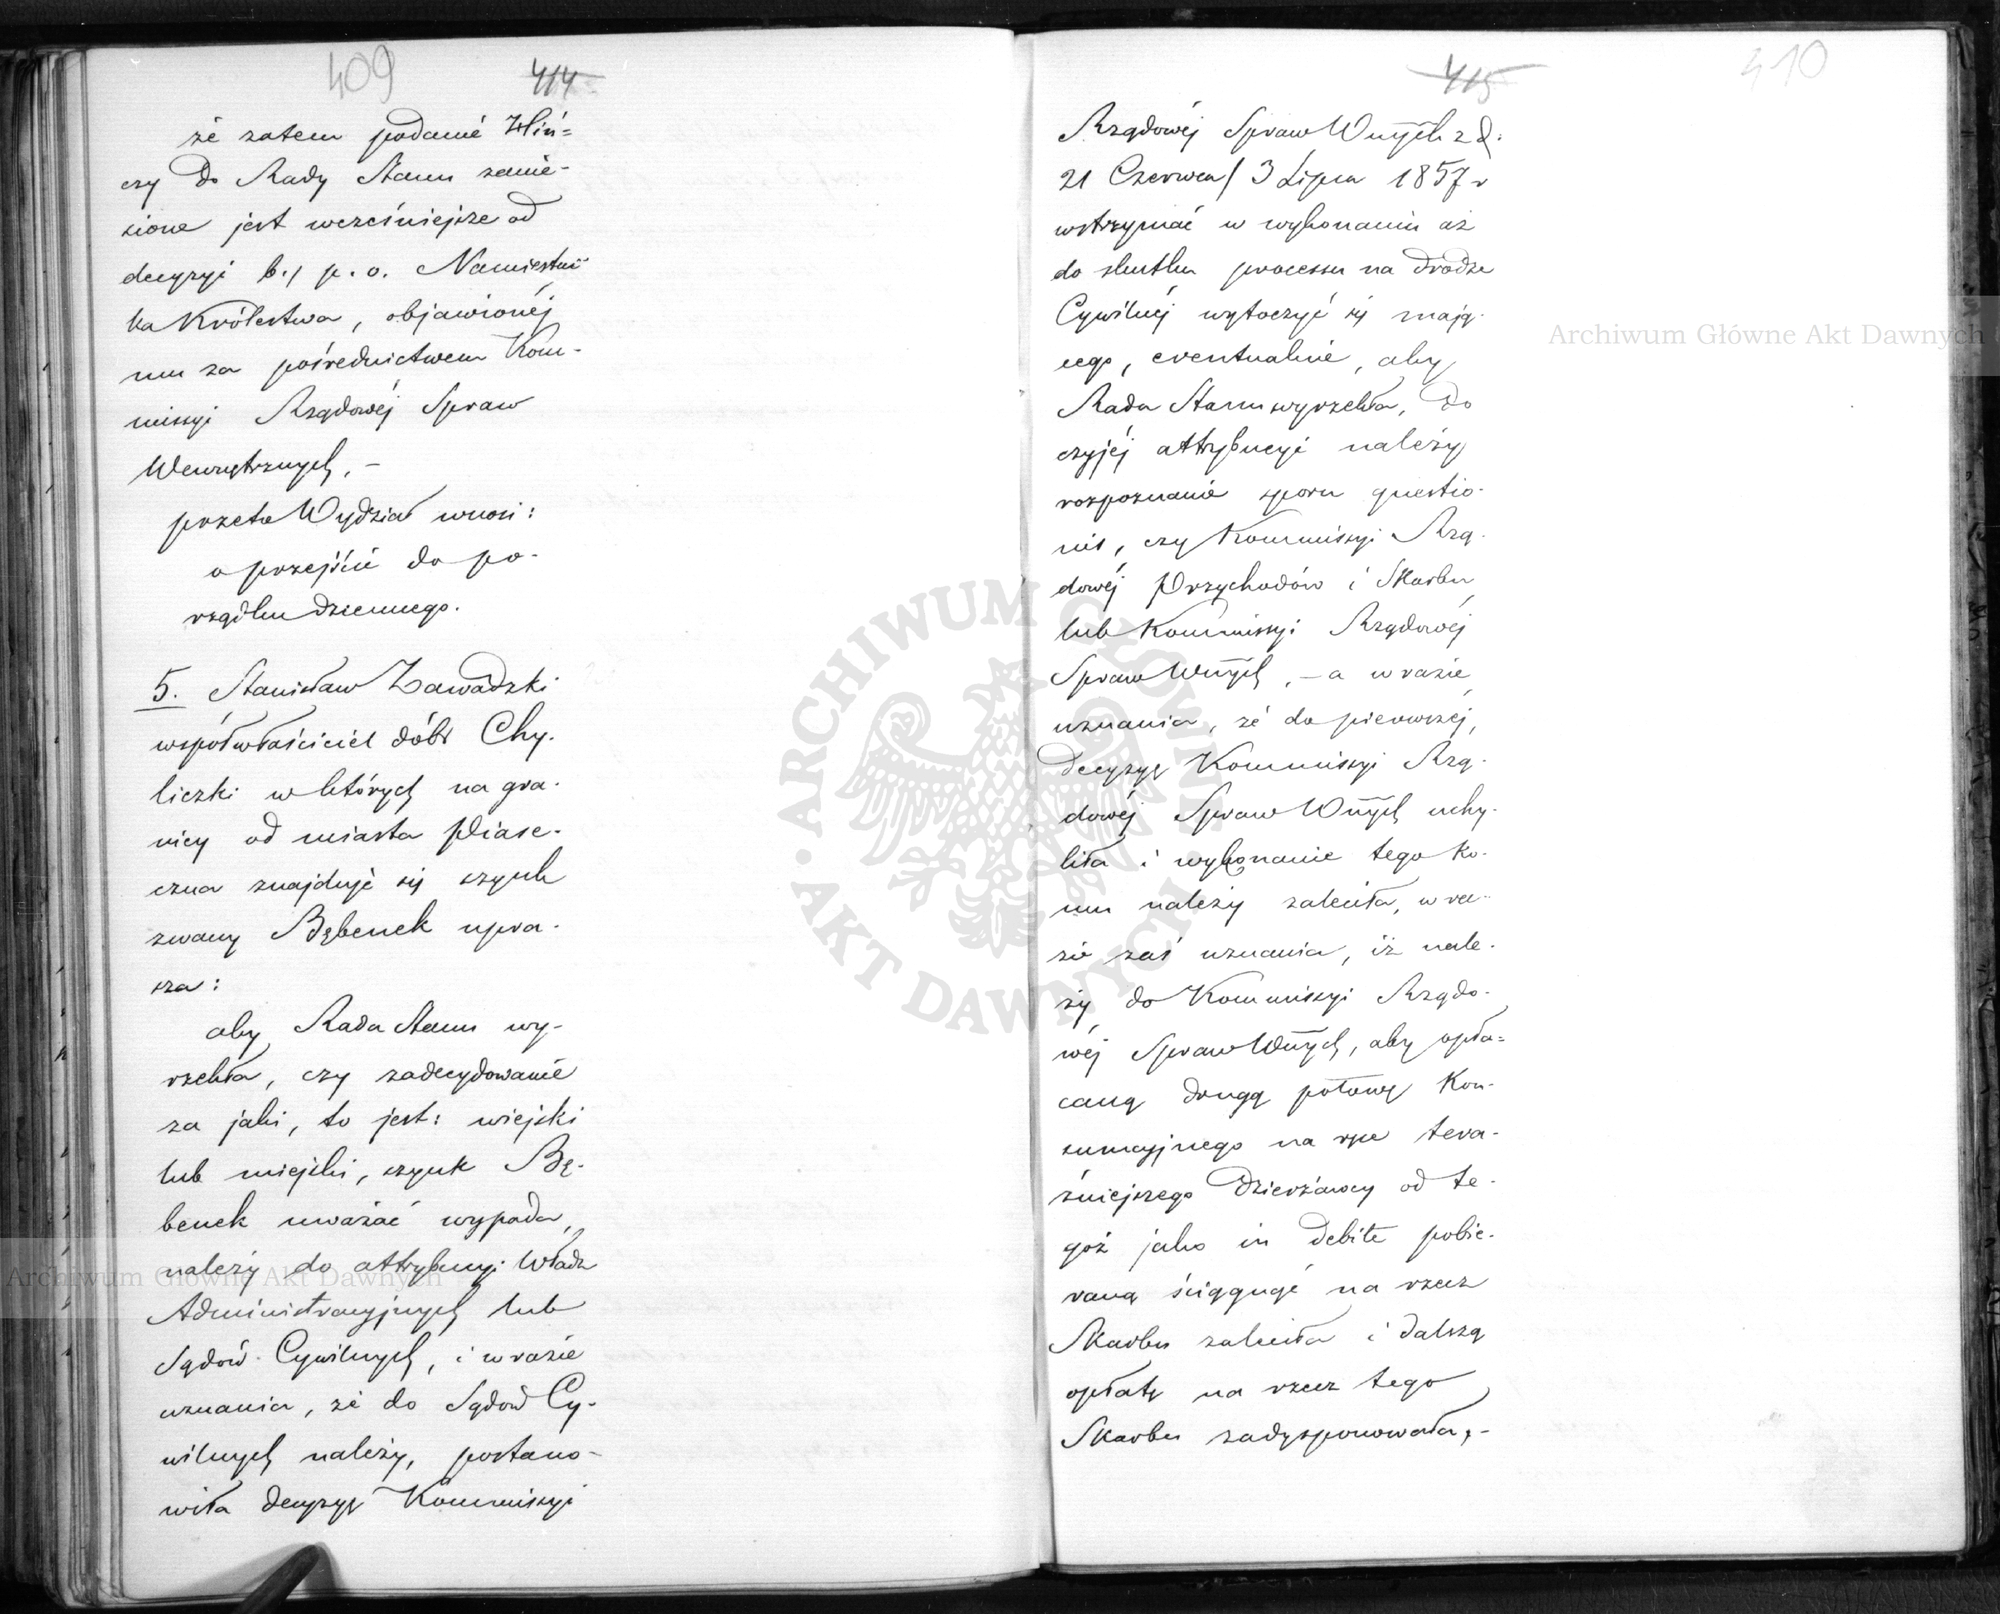 409 414
że zatem podanie Hliń=
czy do Rady Stanu zanie-
sione jest wcześniejsze od
decyzyi b./ p. o. Namiestni
ka Królestwa, objawionéj
mu za pośrednictwem Kom-
missyi Rządowéj Spraw
Wewnętrznych, –
przeto Wydział wnosi:
o przejście do po-
rządku dziennego.
5. Stanisław Zawadzki
współwłaściciel dóbr Chy-
liczki w których na gra-
nicy od miasta Piase-
czna znajduje się szynk
zwany Bębenek upra-
sza:
aby Rada Stanu wy-
rzekła, czy zadecydowanie
za jaki, to jest: wiejski
lub miejski, szynk Bę-
benek uważać wypada,
należy do attrybucyi Władz
Administracyjnych lub
Sądów Cywilnych, i w razie
uznania, że do Sądów Cy-
wilnych należy, postano-
wiła decyzyę Kommissyi
415 410
Rządowéj Spraw Wnych z d:
21 Czerwca / 3 Lipca 1857 r
wstrzymać w wykonaniu aż
do skutku processu na drodze
Cywilnéj wytoczyć się mają-
cego, eventualnie, aby
Rada Stanu wyrzekła, do
czyjéj attrybucyi należy
rozpoznanie sporu questio-
nis, czy Kommissyi Rzą-
dowéj Przychodów i Skarbu,
lub Kommissyi Rządowéj
Spraw Wnych, – a w razie
uznania, że do pierwszéj,
decyzyę Kommissyi Rzą-
dowéj Spraw Wnych uchy-
liła i wykonanie tego ko-
mu należy zaleciła, w ra-
zie zaś uznania, iż nale-
ży do Kommissyi Rządo-
wéj Spraw Wnych, aby opła=
caną drugą połowę Kon-
sumcyjnego na rzecz tera-
źniejszego dzierżawcy od te-
goż jako in debite pobie-
raną ściągnąć na rzecz
Skarbu zaleciła i dalszą
opłatę na rzecz tego
Skarbu zadysponowała, –
Archiwum Główne Akt Dawnych
Archiwum Główne Akt Dawnych
ARCHIWUM GŁÓWNE · AKT DAWNYCH ·